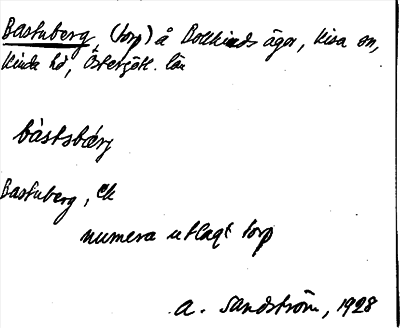 Bastuberg, (torp) å Bollkinds ägor, Kisa sn,
Kinda hd, Östergötl. län
båstsbærj
Bastuberg, Ek
numera utlagt torp
A. Sandström, 1928